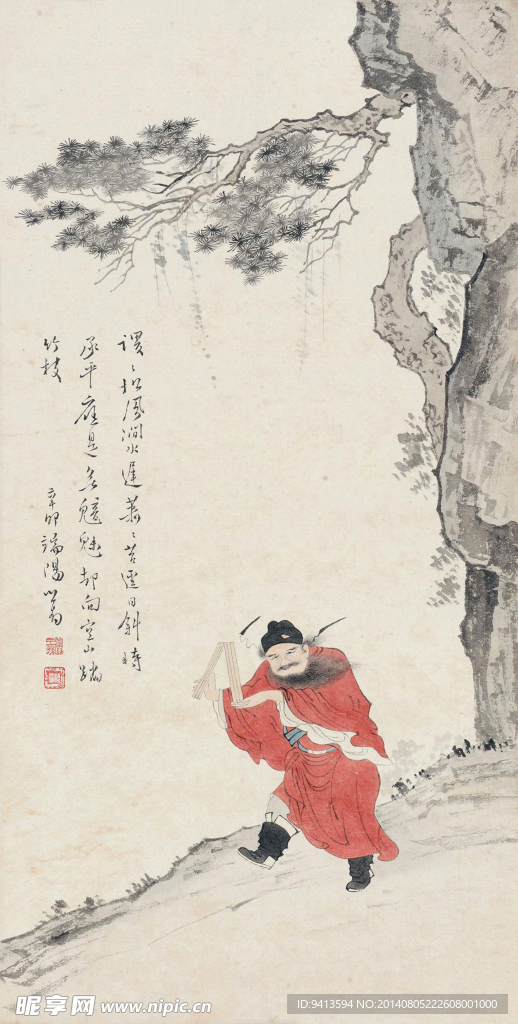 谡〻松風澗水遲蕭〻苔逕日斜時
承平應是無魑魅却向空山踏
竹枝
辛卯端陽心畬
昵享网 www.nipic.cn
ID:9413594 NO:20140805222608001000